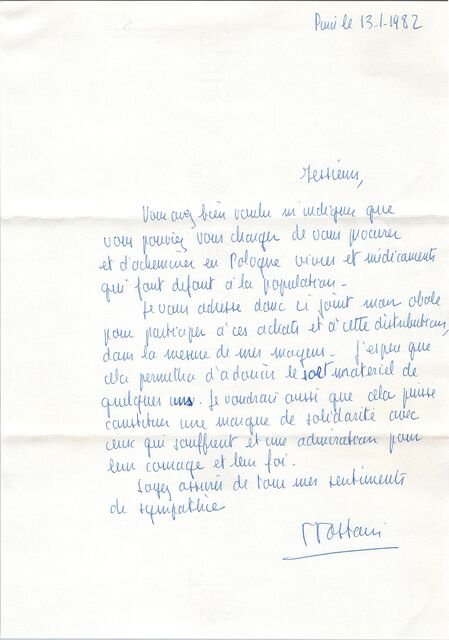 Paris le 13-1-1982
Messieurs,
Vous avez bien voulu m'indiquer que
vous pouviez vous charger de vous procurer
et d'acheminer en Pologne vivres et médicaments
qui font défaut à la population.
Je vous adresse donc ci joint mon obole
pour participer à ces achats et à cette distribution,
dans la mesure de mes moyens. J'espère que
cela permettra d'adoucir le sort matériel de
quelques uns. Je voudrais aussi que cela puisse
constituer une marque de solidarité avec
ceux qui souffrent et une admiration pour
leur courage et leur foi.
Soyez assurés de tous mes sentiments
de sympathie